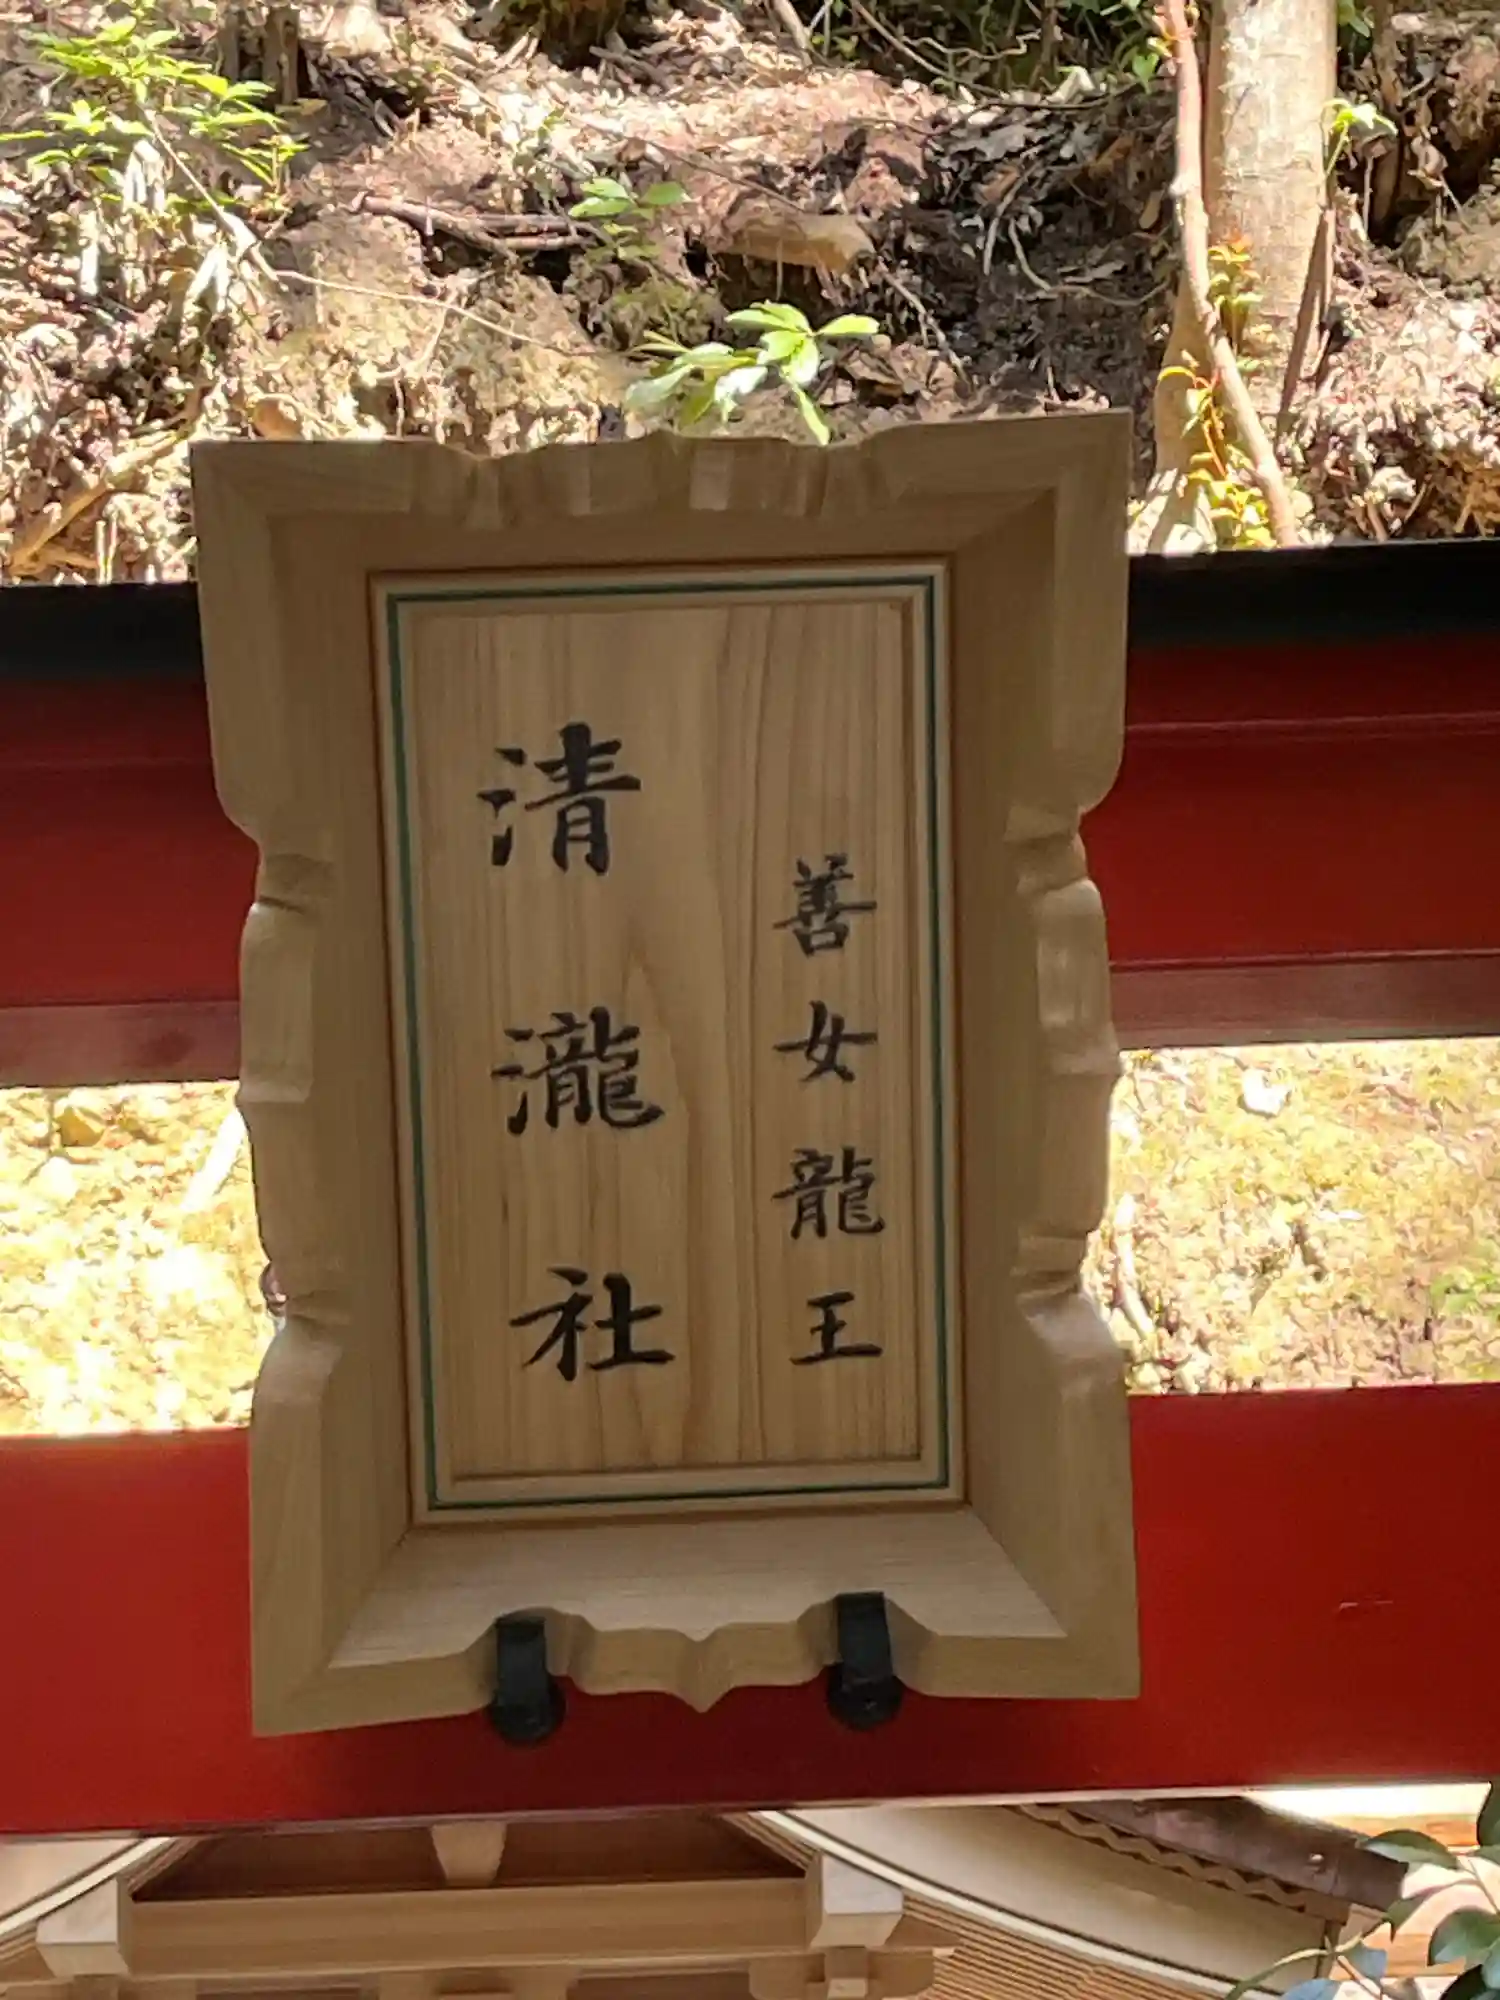 善女龍王
清瀧社